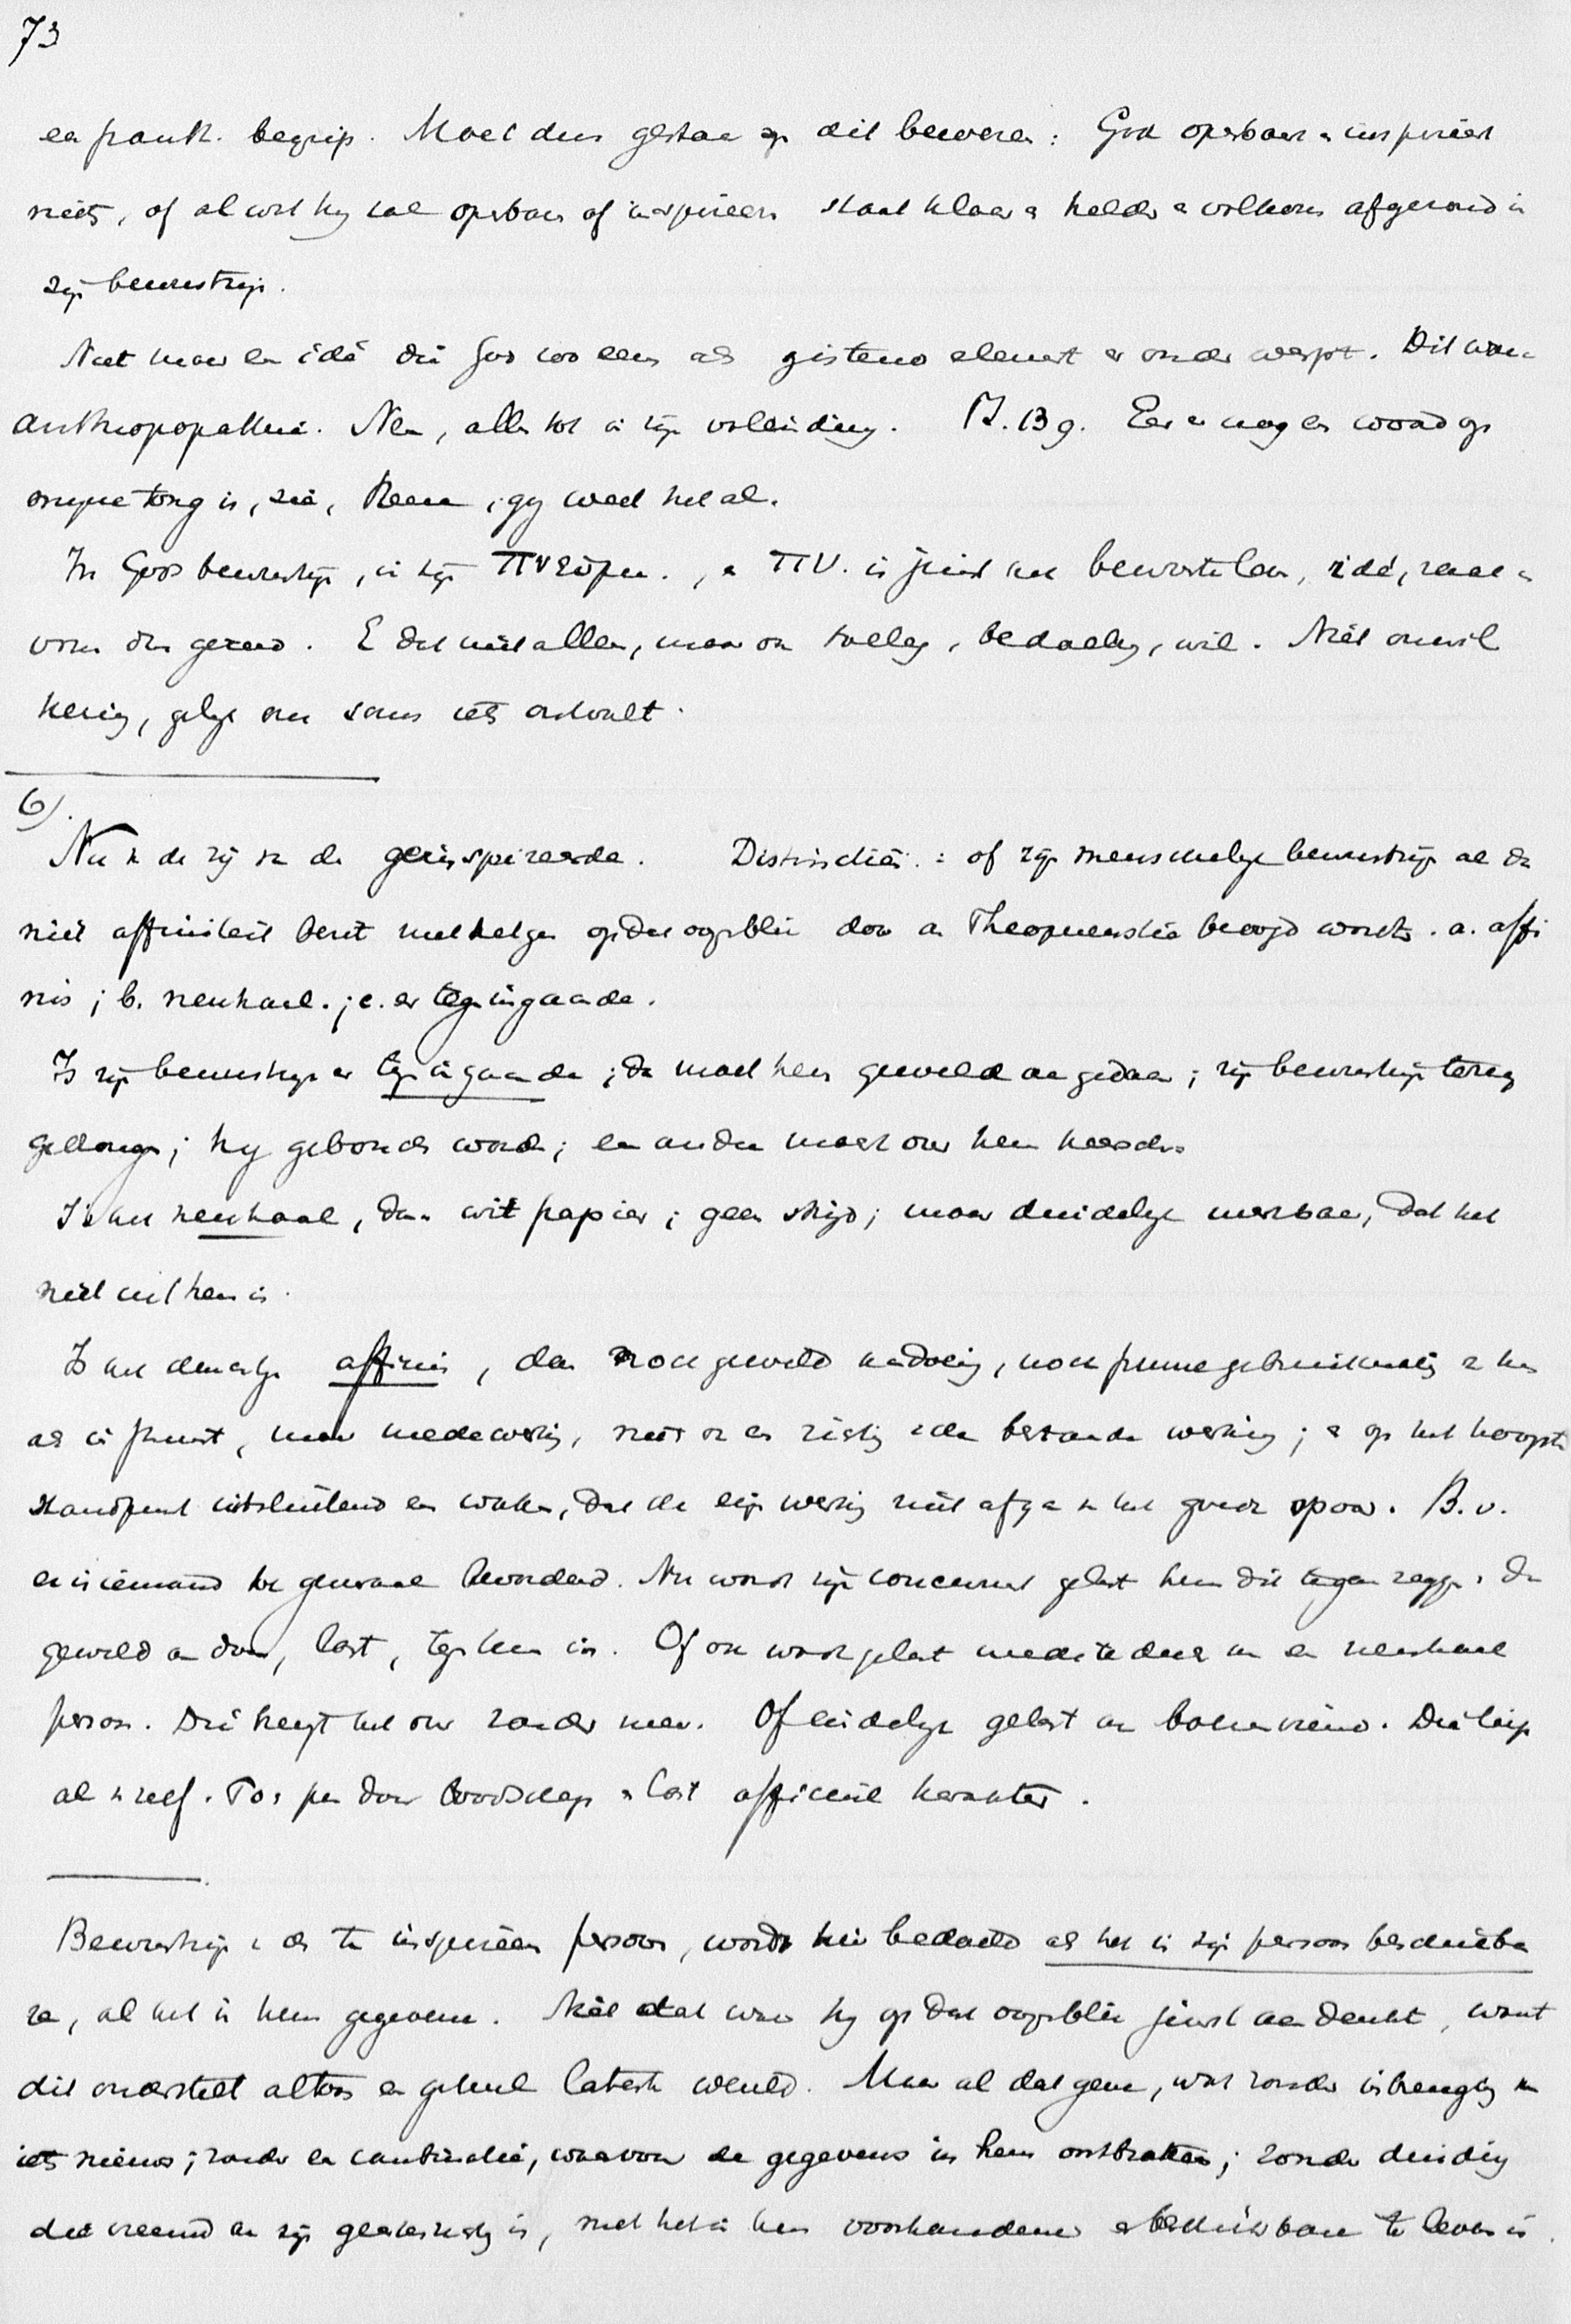 73
en panth. begrip. Moet dus gestaan op dit beweren: God openbaart en inspireert
niets, of al wat hij zal openbaren of inspireeren staat klaar en helder en volkomen afgerond in
zijn bewustzijn.
Niet maar een idé die God zoo eens als gistend element er onder werpt. Dit ware
anthropopathie. Neen, alles tot in zijn voleinding. Ps. 139. Eer er nog een woord op
mijne tong is, zie, Heere, gij weet het al.
In Gods bewustzijn, in zijn πνεῦμα., en πν. is juist het bewuste leven, idé,
vorm. En dat niet alleen, maar ook, bedoeling, wil. Niet onwil
keurig, gelijk ons soms iets ontvalt.
6).
Nu van de zij van de geïnspireerde. Distinctie: of zijn menschelijk bewustzijn al dan
niet affiniteit bezit met hetgeen op dat oogenblik door de Theopneustie beoogd wordt. a. affi
nis; b. neutraal.; c. er tegen ingaande.
Is zijn bewustzijn er tegen ingaande; dan moet hem geweld aangedaan; zijn bewustzijn terug
gedrongen; hij gebonden worden; een ander moet over hem heerschen
Is het neutraal, dan wit papier; geen strijd; maar duidelijk merkbaar, dat het
niet uit hem is.
Is het daarentegen affinis, dan noch geweld aandoening, noch pennegebruikmaking van hem
als instrument, maar medewerking, niet van een rustig in hem bestaande werking; en op het hoogste
standpunt uitsluitend een waken, dat de eigen werking niet afga van het goede spoor. B.v.
er is iemand tot generaal bevorderd. Nu wordt zijn concurrent gelast hem dit te gaan zeggen. Dan
geweld aan doen, last, tegen hem in. Of ook wordt gelast mede te deelen aan een neutraal
persoon. Die brengt het over zonder meer. Of eindelijk gelast aan boezemvriend. Die liep
al van zelf. door boodschap en last officieel karakter.
Bewustzijn in den te inspireeren persoon, wordt hier bedoeld als het in zijn persoon beschikba
re, al het in hem gegevene. Niet dat waar hij op dat oogenblik juist aan denkt, want
dit onderstelt altoos een geheel latente wereld. Maar al datgene, wat zonder inbrenging van
iets nieuws; zonder een combinatie, waarvoor de gegevens in hem ontbraken; zonder duiding
die vreemd aan zijn geestesrichting is, met het in hem voorhandene en beschikbare te leveren is.